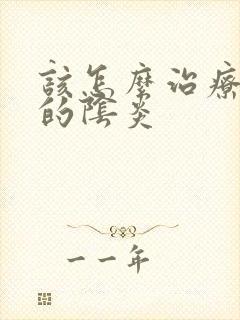 該怎麼治療
的陰炎
一一年